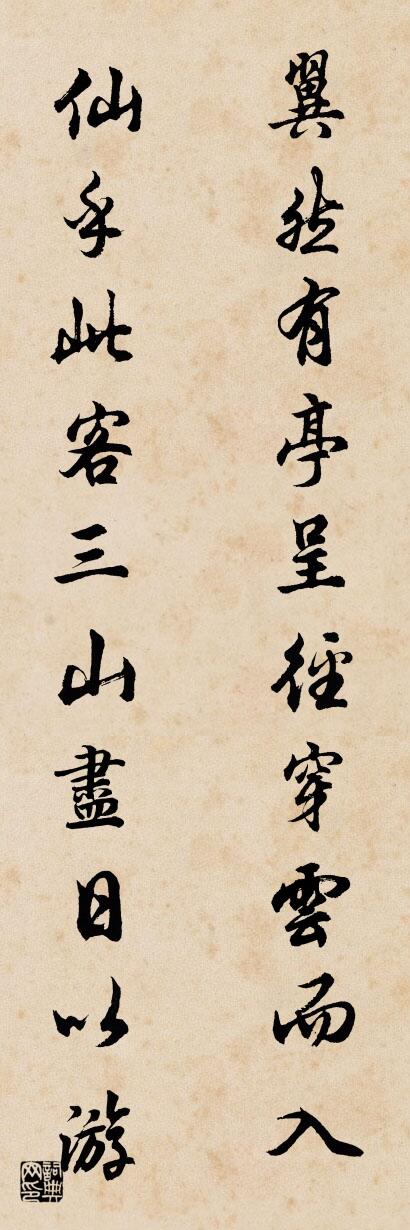 翼然有亭呈徑穿雲而入
仙乎此客三山盡日以游
詞典网印